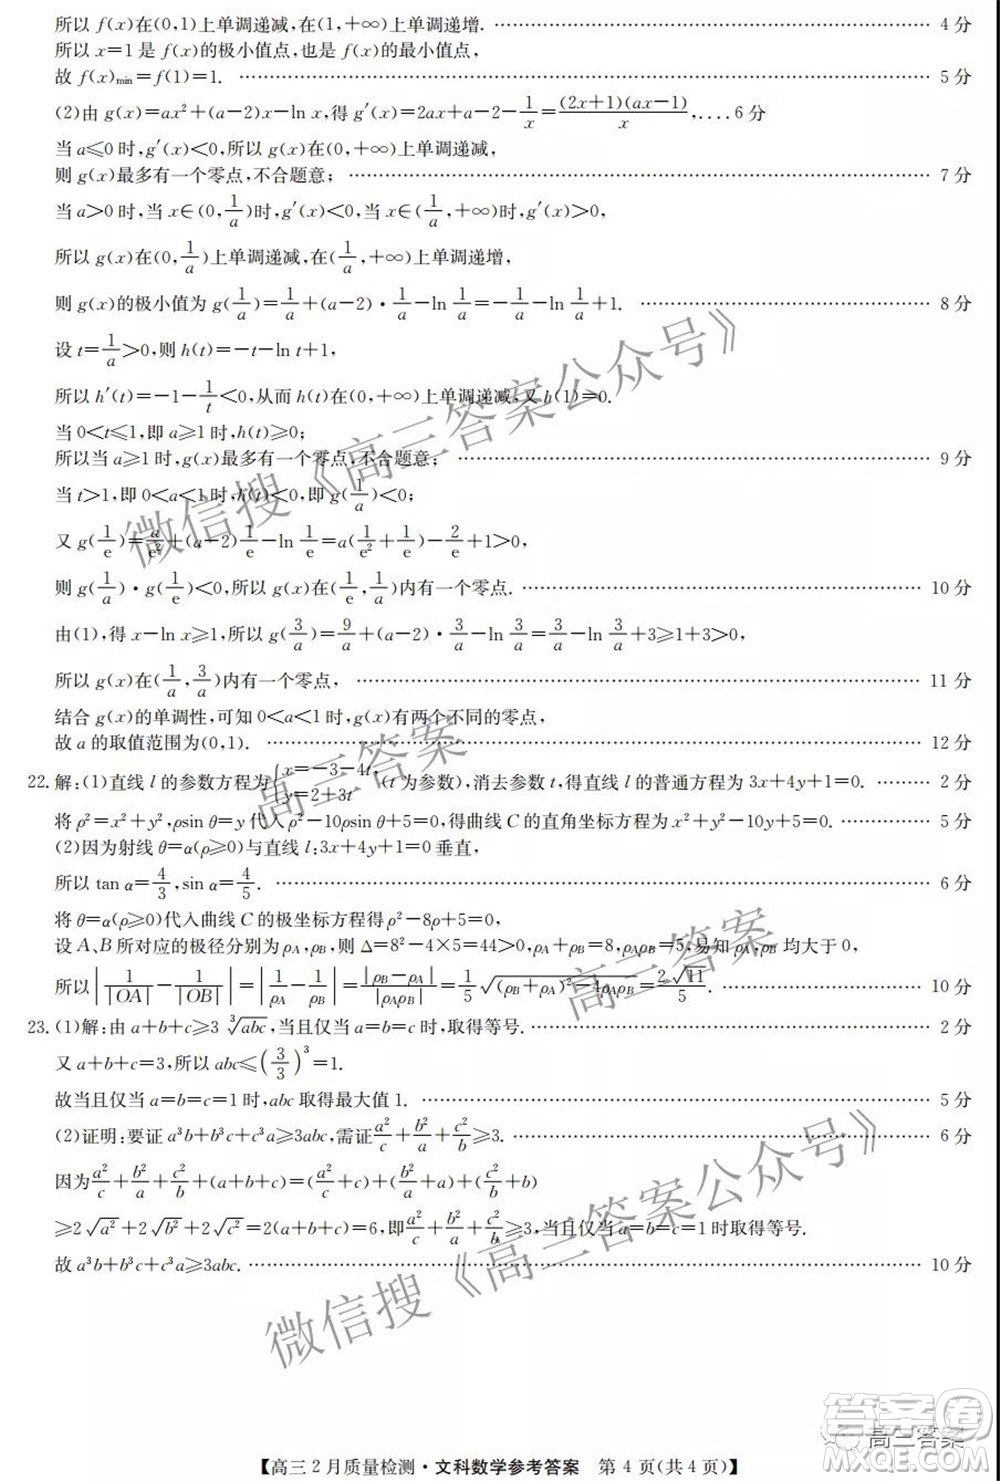 所以 f(x)在(0,1)上单调递减,在(1,+∞)上单调递增. 4 分
所以 x=1 是 f(x)的极小值点,也是 f(x)的最小值点,
故 f(x)min=f(1)=1. 5 分
(2)由 g(x)=ax²+(a-2)x-ln x,得 g′(x)=2ax+a-2-1/x=(2x+1)(ax-1)/x,....6 分
当 a≤0 时,g′(x)<0,所以 g(x)在(0,+∞)上单调递减,
则 g(x)最多有一个零点,不合题意; 7 分
当 a>0 时,当 x∈(0,1/a)时,g′(x)<0,当 x∈(1/a,+∞)时,g′(x)>0,
所以 g(x)在(0,1/a)上单调递减,在(1/a,+∞)上单调递增,
则 g(x)的极小值为 g(1/a)=1/a+(a-2)·1/a-ln 1/a=-1/a-ln 1/a+1. 8 分
设 t=1/a>0,则 h(t)=-t-ln t+1,
所以 h′(t)=-1-1/t<0,从而 h(t)在(0,+∞)上单调递减,又 h(1)=0.
当 0<t≤1,即 a≥1 时,h(t)≥0;
所以当 a≥1 时,g(x)最多有一个零点,不合题意; 9 分
当 t>1,即 0<a<1 时,h(t)<0,即 g(1/a)<0;
又 g(1/e)=a/e²+(a-2)1/e-ln 1/e=a(1/e²+1/e)-2/e+1>0,
则 g(1/a)·g(1/e)<0,所以 g(x)在(1/e,1/a)内有一个零点. 10 分
由(1),得 x-ln x≥1,所以 g(3/a)=9/a+(a-2)·3/a-ln 3/a=3/a-ln 3/a+3≥1+3>0,
所以 g(x)在(1/a,3/a)内有一个零点, 11 分
结合 g(x)的单调性,可知 0<a<1 时,g(x)有两个不同的零点,
故 a 的取值范围为(0,1). 12 分
22.解:(1)直线 l 的参数方程为{x=-3-4t, y=2+3t (t 为参数),消去参数 t,得直线 l 的普通方程为 3x+4y+1=0. 2 分
将 ρ²=x²+y²,ρsin θ=y 代入 ρ²-10ρsin θ+5=0,得曲线 C 的直角坐标方程为 x²+y²-10y+5=0. 5 分
(2)因为射线 θ=α(ρ≥0)与直线 l:3x+4y+1=0 垂直,
所以 tan α=4/3,sin α=4/5. 6 分
将 θ=α(ρ≥0)代入曲线 C 的极坐标方程得 ρ²-8ρ+5=0,
设 A、B 所对应的极径分别为 ρA,ρB,则 Δ=8²-4×5=44>0,ρA+ρB=8,ρAρB=5,易知 ρA,ρB 均大于 0,
所以|1/|OA|-1/|OB||=|1/ρA-1/ρB|=|ρB-ρA|/|ρAρB|=1/5√((ρB+ρA)²-4ρAρB)=2√11/5. 10 分
23.(1)解:由 a+b+c≥3 ∛abc,当且仅当 a=b=c 时,取得等号. 2 分
又 a+b+c=3,所以 abc≤(3/3)³=1.
故当且仅当 a=b=c=1 时,abc 取得最大值 1. 5 分
(2)证明:要证 a³b+b³c+c³a≥3abc,需证 a²/c+b²/a+c²/b≥3. 6 分
因为 a²/c+b²/a+c²/b+(a+b+c)=(a²/c+c)+(b²/a+a)+(c²/b+b)
≥2√a²+2√b²+2√c²=2(a+b+c)=6,即 a²/c+b²/a+c²/b≥3,当且仅当 a=b=c=1 时取得等号.
故 a³b+b³c+c³a≥3abc. 10 分
【高三 2 月质量检测·文科数学参考答案 第 4 页(共 4 页)】
微信搜《高三答案公众号》
高三答案
高三答案
微信搜《高三答案公众号》
答案圈
高三答案
MXQE.COM